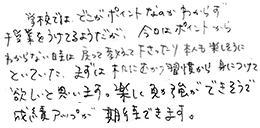 学校では、どこがポイントなのかわからず
授業をうけてるようだが、今日はポイントから
わからない時は戻って教えて下さったり本人も楽しそうに
といていた。まずは机にむかう習慣から身につけて
欲しいと思います。楽しく勉強ができそうで
成績アップが期待できます。